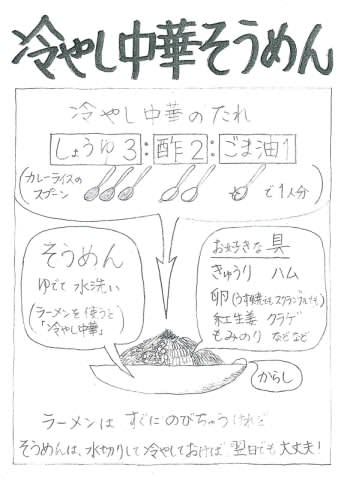 冷やし中華そうめん
冷やし中華のたれ
しょうゆ3:酢2:ごま油1
(カレーライスのスプーン で1人分)
そうめん
ゆでて水洗い
(ラーメンを使うと
「冷やし中華」)
お好きな具
きゅうり ハム
卵(うす焼でも、スクランブルでも)
紅生姜 クラゲ
もみのり などなど
からし
ラーメンは すぐにのびちゃうけれど
そうめんは、水切りして冷やしておけば 翌日でも大丈夫!